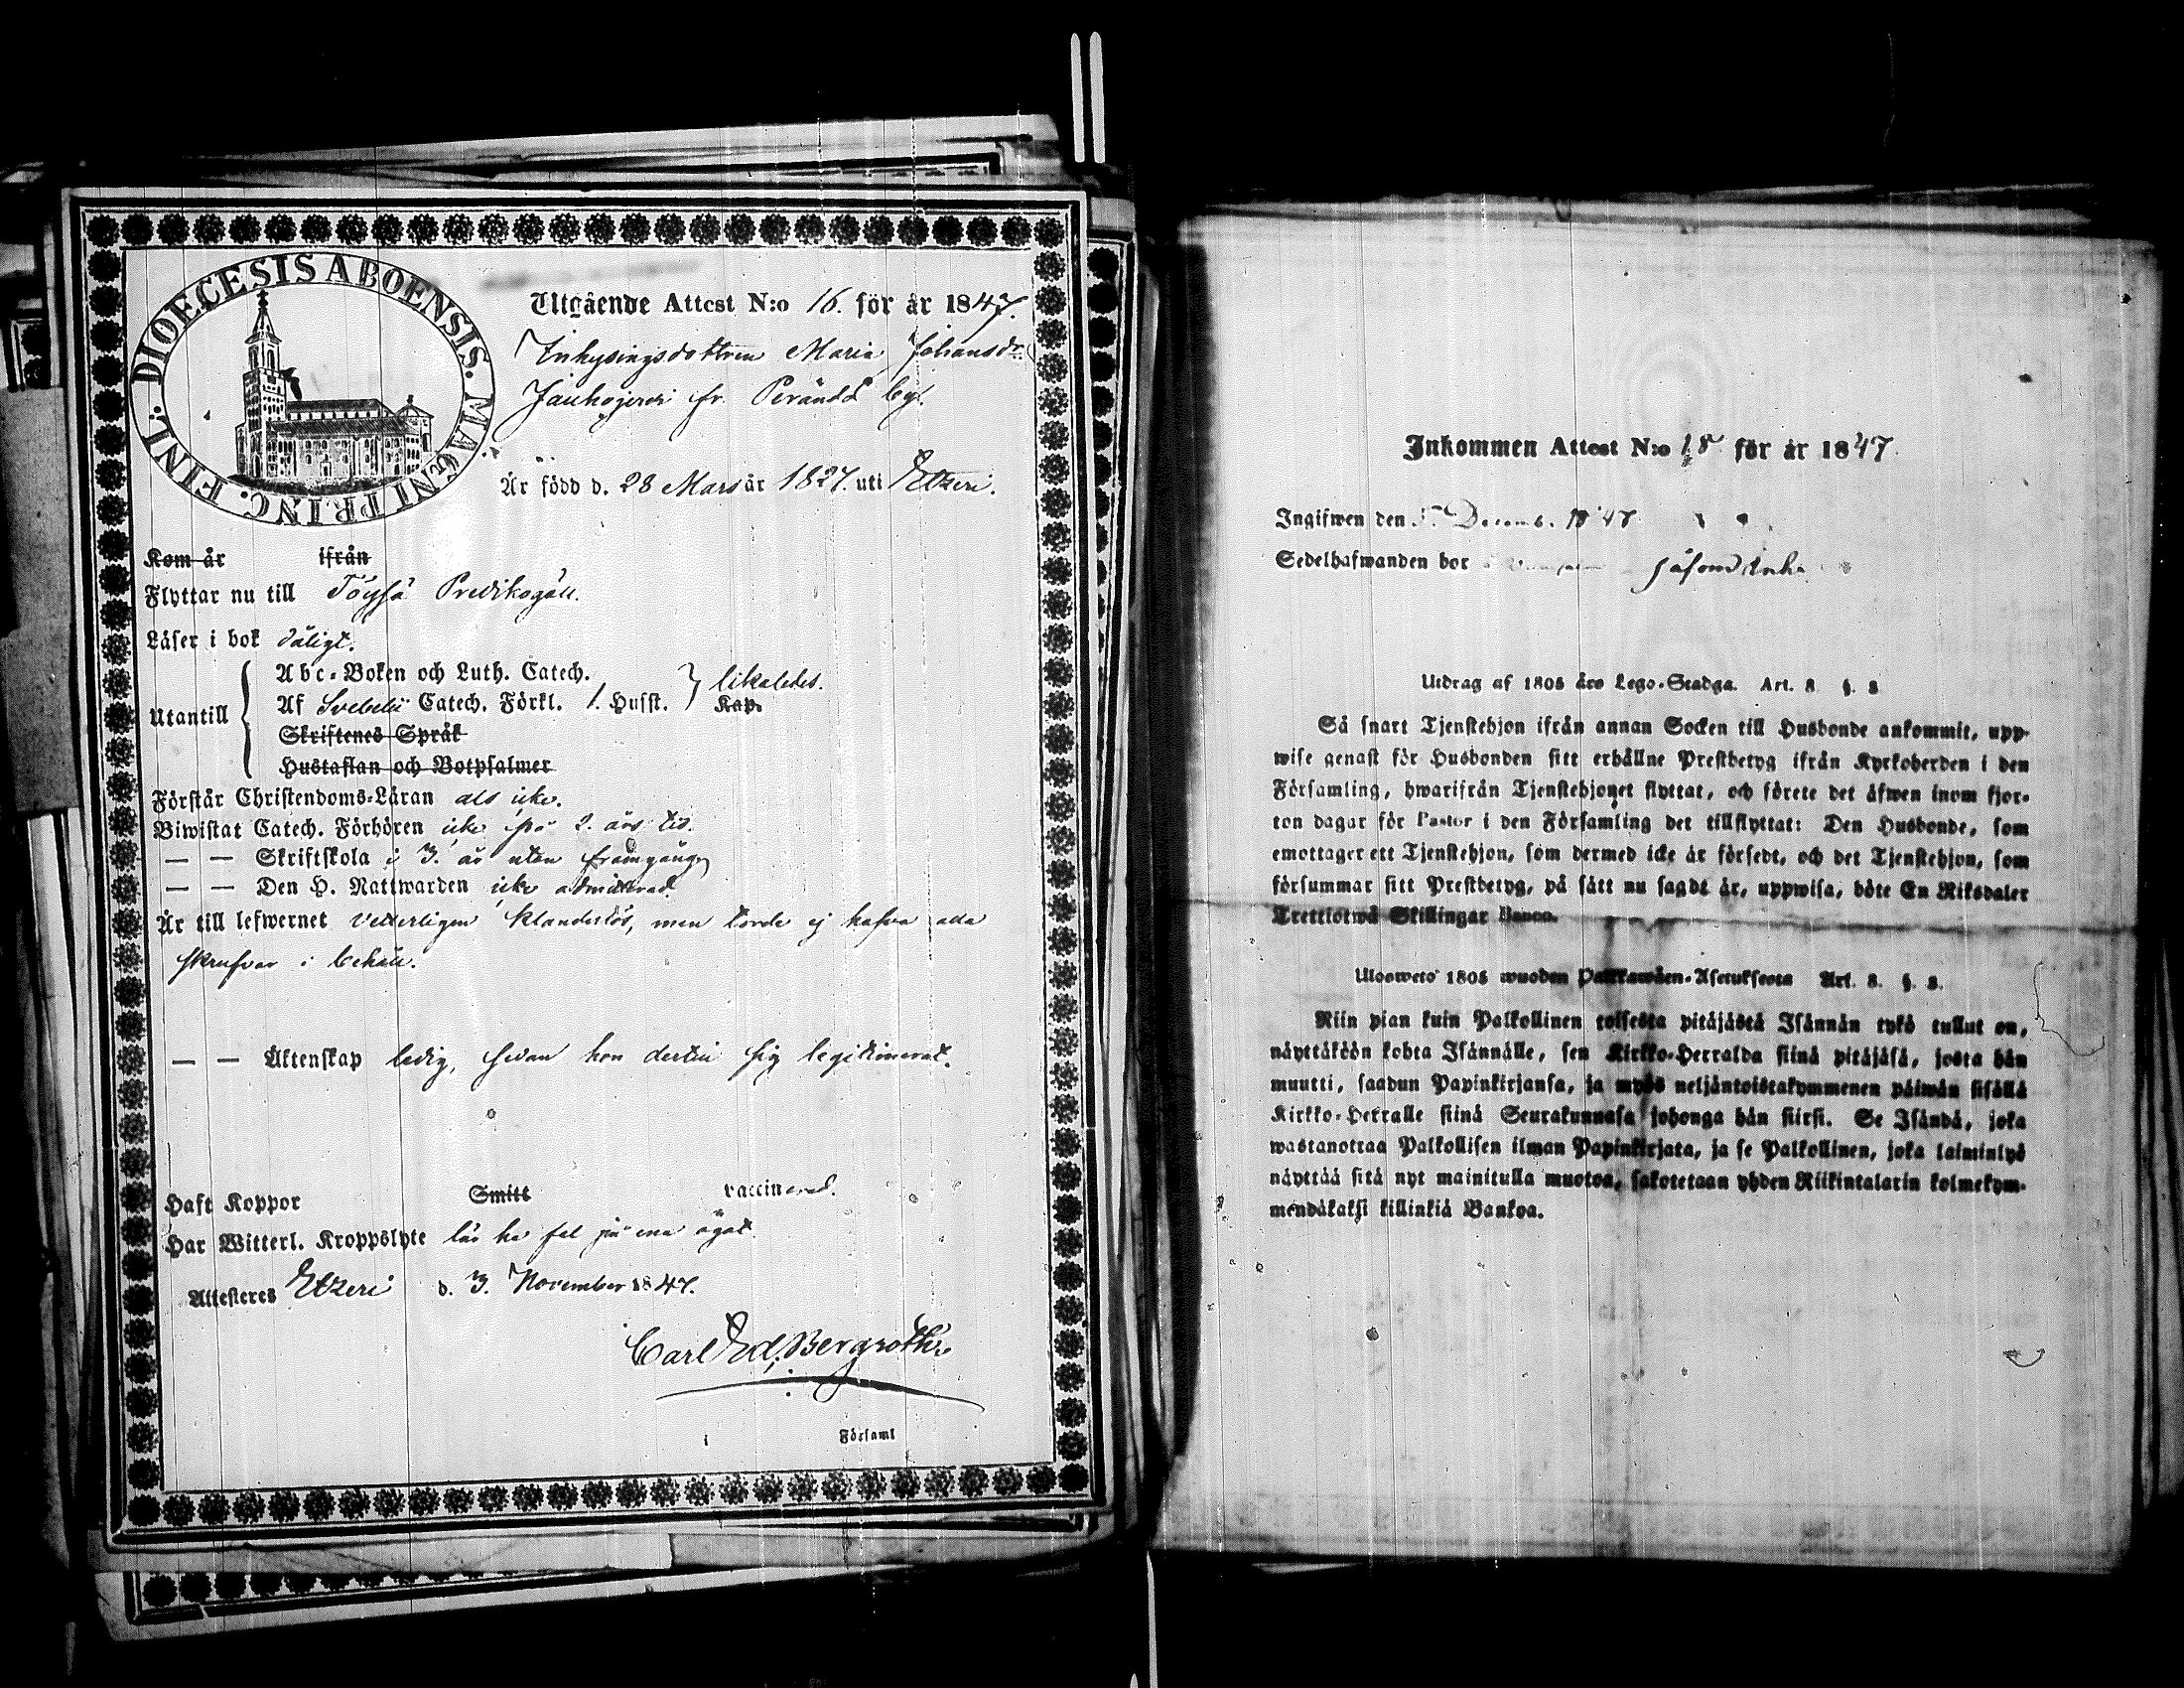 DIOECESIS ABOENSIS. MAGNI PRINC. FINL:
Utgående Attest N:o 16. för år 1847.
Inhysingsdottren Maria Johansdr
fr. Perändö by.
Är född d. 28 Mars år 1827. uti Etzeri.
Kom år ifrån
Flyttar nu till Töysä Predikogäll.
Läser i bok dåligt.
Utantill
Abc-Boken och Luth. Catech.
Af Svebelii Catech. Förkl. 1. Husst. Kap. likaledes.
Skriftenes Språk
Hustaflan och Botpsalmer
Förstår Christendoms-Läran als icke.
Biwistat Catech. Förhören icke på 2. års tid.
— — Skriftskola i 3. år utan framgång
— — Den H. Nattwarden icke admitterad
Är till lefwernet veterligen klanderlös, men torde ej hafva alla
skrufvar i behåll.
— — Äktenskap ledig, sedan hon dertill sig legitimerat.
Haft Koppor Smitt vaccinerad.
Har Witterl. Kroppslyte lär ha fel på ena ögat.
Attesteres Etzeri d. 3. November 1847.
Carl Ed. Bergroth
i Församl
Inkommen Attest N:o 18 för år 1847.
Ingifwen den 5. Decemb. 1847
Sedelhafwanden bor
Utdrag af 1805 års Lego-Stadga. Art. 8 §. 8
Så snart Tjenstehjon ifrån annan Socken till Husbonde ankommit, upp-
wise genast för Husbonden sitt erhållne Prestbetyg ifrån Kyrkoherden i den
Församling, hwarifrån Tjenstehjonet flyttat, och förete det äfwen inom fjor-
ton dagar för Pastor i den Församling det tillflyttat: Den Husbonde, som
emottager ett Tjenstehjon, som dermed icke är försedt, och det Tjenstehjon, som
försummar sitt Prestbetyg, på sätt nu sagdt är, uppwisa, böte En Riksdaler
Trettiotwå Skillingar Banco.
Uloswetö 1805 wuoden Palkkawäen-Asetuksesta Art. 8. §. 8.
Niin pian kuin Palkollinen toisesta pitäjästä Isännän tykö tullut on,
näyttäköön kohta Isännälle, sen Kirkko-Herralda siinä pitäjäsä, josta hän
muutti, saadun Papinkirjansa, ja myös neljäntoistakymmenen päiwän sisällä
Kirkko-Herralle siinä Seurakunnasa johonga hän siirsi. Se Isändä, joka
wastanottaa Palkollisen ilman Papinkirjata, ja se Palkollinen, joka laiminlyö
näyttää sitä nyt mainitulla muotoa, sakotetaan yhden Riikintalarin kolmekym-
mendäkaksi killinkiä Bankoa.